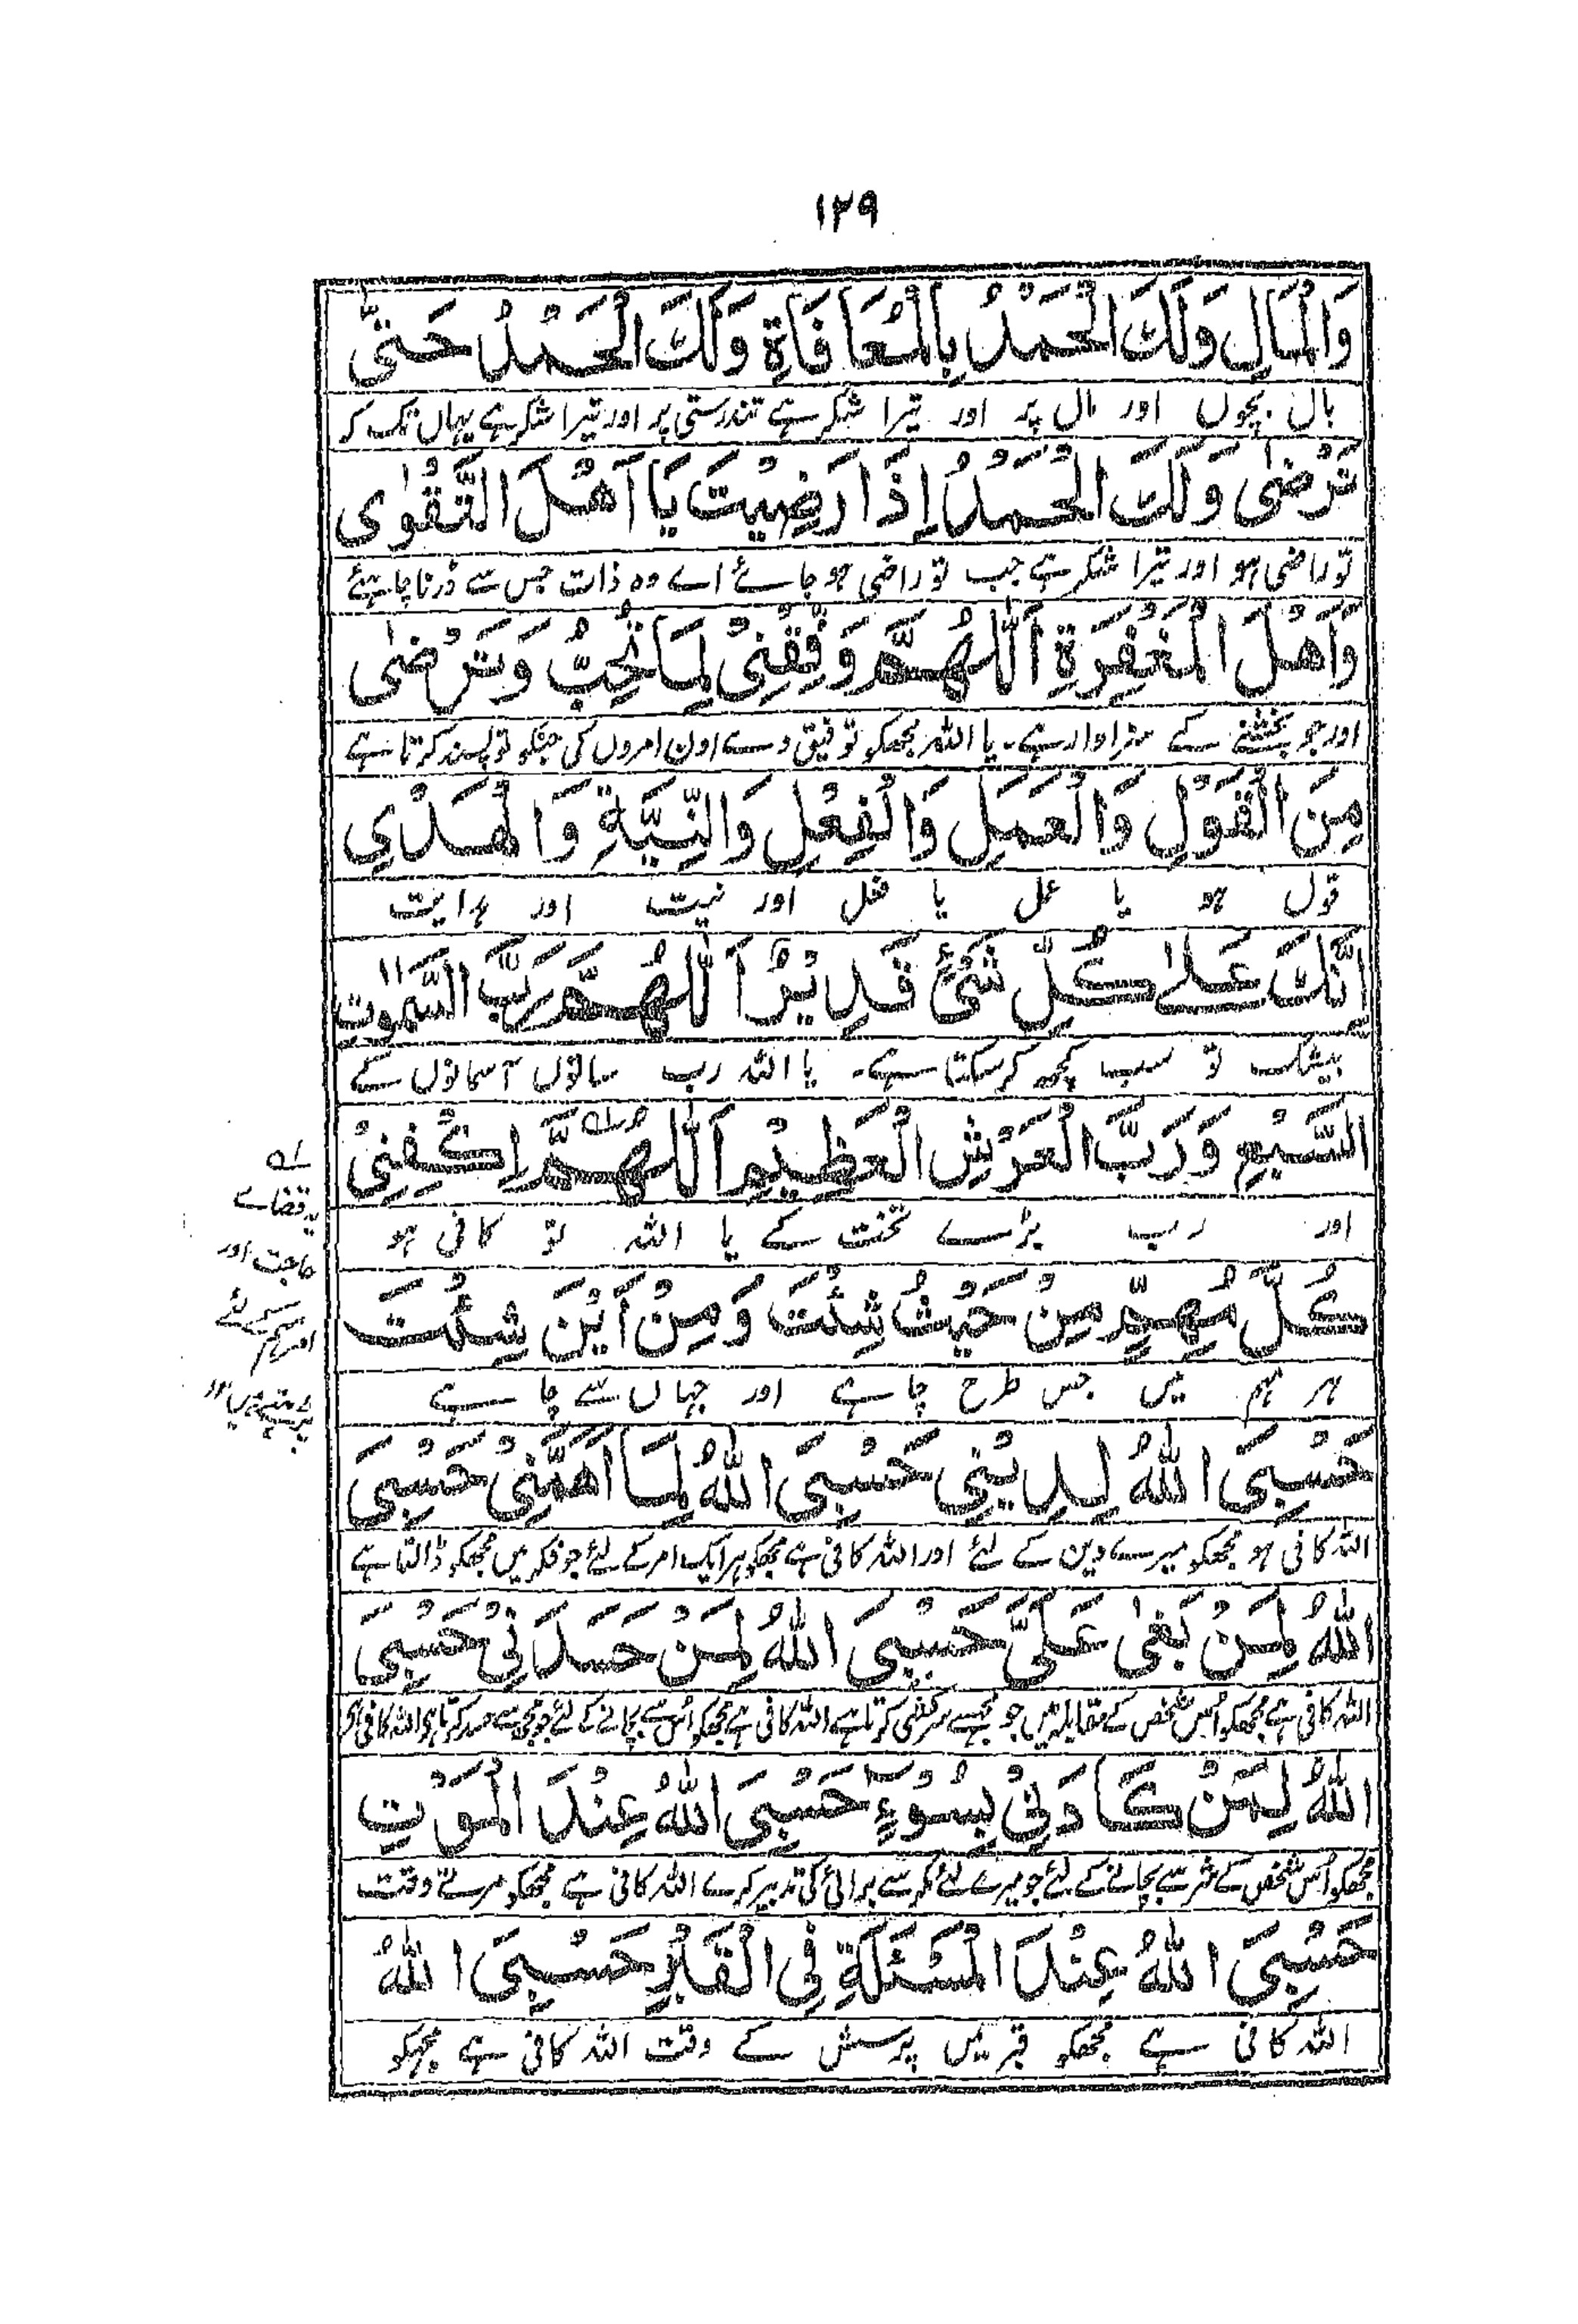 ۱۲۹
وَالْمَالِ وَلَكَ الْحَمْدُ بِالْمُعَافَاةِ وَلَكَ الْحَمْدُ حَتّٰى
بال بچوں اور مال پر اور تیرا شکر ہے تندرستی پر اور تیرا شکر ہے یہاں تک کہ
تَرْضٰى وَلَكَ الْحَمْدُ اِذَا رَضِيْتَ يَا اَهْلَ التَّقْوٰى
تو راضی ہو اور تیرا شکر ہے جب تو راضی ہو جائے اے وہ ذات جس سے ڈرنا چاہئے
وَاَهْلَ الْمَغْفِرَةِ اَللّٰهُمَّ وَفِّقْنِیْ لِمَا تُحِبُّ وَتَرْضٰى
اور جو بخشنے کے سزاوار ہے۔ یا اللہ مجھکو توفیق دے اون امروں کی جنکو تو پسند کرتا ہے
مِنَ الْقَوْلِ وَالْعَمَلِ وَالْفِعْلِ وَالنِّيَّةِ وَالْهَدْيِ
قول ہو یا عمل یا فعل اور نیت اور ہدایت
اِنَّكَ عَلٰى كُلِّ شَیْءٍ قَدِيْرٌ اَللّٰهُمَّ رَبَّ السَّمٰوٰتِ
بیشک تو سب کچھ کر سکتا ہے۔ یا اللہ رب ساتوں آسمانوں کے
السَّبْعِ وَرَبَّ الْعَرْشِ الْعَظِيْمِ اَللّٰهُمَّ اكْفِنِیْ
اور رب بڑے تخت کے یا اللہ تو کافی ہو
كُلَّ مُهِمٍّ مِنْ حَيْثُ شِئْتَ وَمِنْ اَيْنَ شِئْتَ
ہر مہم میں جس طرح چاہے اور جہاں سے چاہے
حَسْبِیَ اللّٰهُ لِدِيْنِیْ حَسْبِیَ اللّٰهُ لِمَا اَهَمَّنِیْ حَسْبِیَ
اللہ کافی ہو مجھکو میرے دین کے لئے اور اللہ کافی ہے مجھکو ہر ایک امر کے لئے جو فکر میں مجھکو ڈالتا ہے
اللّٰهُ لِمَنْ بَغٰى عَلَیَّ حَسْبِیَ اللّٰهُ لِمَنْ حَسَدَنِیْ حَسْبِیَ
اللہ کافی ہے مجھکو اُس شخص کے مقابلہ میں جو مجھسے سرکشی کرتا ہے اللہ کافی ہے مجھکو اُس سے بچانے کے لئے جو مجھ سے حسد کرتا ہو اللہ کافی ہے
اللّٰهُ لِمَنْ كَادَنِیْ بِسُوْءٍ حَسْبِیَ اللّٰهُ عِنْدَ الْمَوْتِ
مجھکو اُس شخص کے شر سے بچانے کے لئے جو میرے لئے مکر سے برائی کی تدبیر کرے اللہ کافی ہے مجھکو مرتے وقت
حَسْبِیَ اللّٰهُ عِنْدَ الْمَسْئَلَةِ فِی الْقَبْرِ حَسْبِیَ اللّٰهُ
اللہ کافی ہے مجھکو قبر میں پرسش کے وقت اللہ کافی ہے مجھکو
لہ
یہ قضائے
حاجت اور